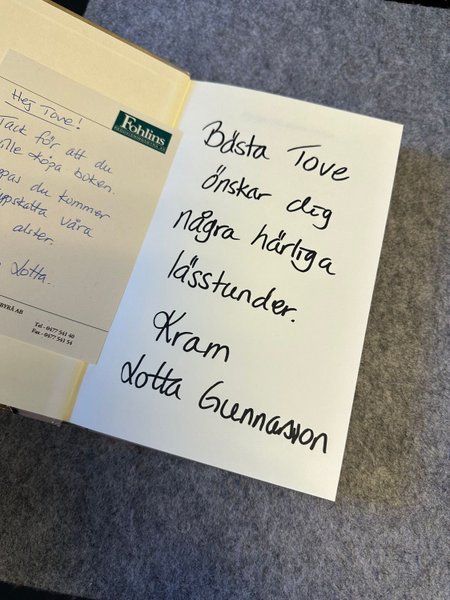 Hej Tove!
Tack för att du
ville köpa boken.
du kommer
uppskatta våra
alster.
Lotta.
Fohlins
BYRÅ AB
Tel - 0477 541 40
Fax - 0477 541 54
Bästa Tove
önskar dig
några härliga
lässtunder.
Kram
Lotta Gunnarson